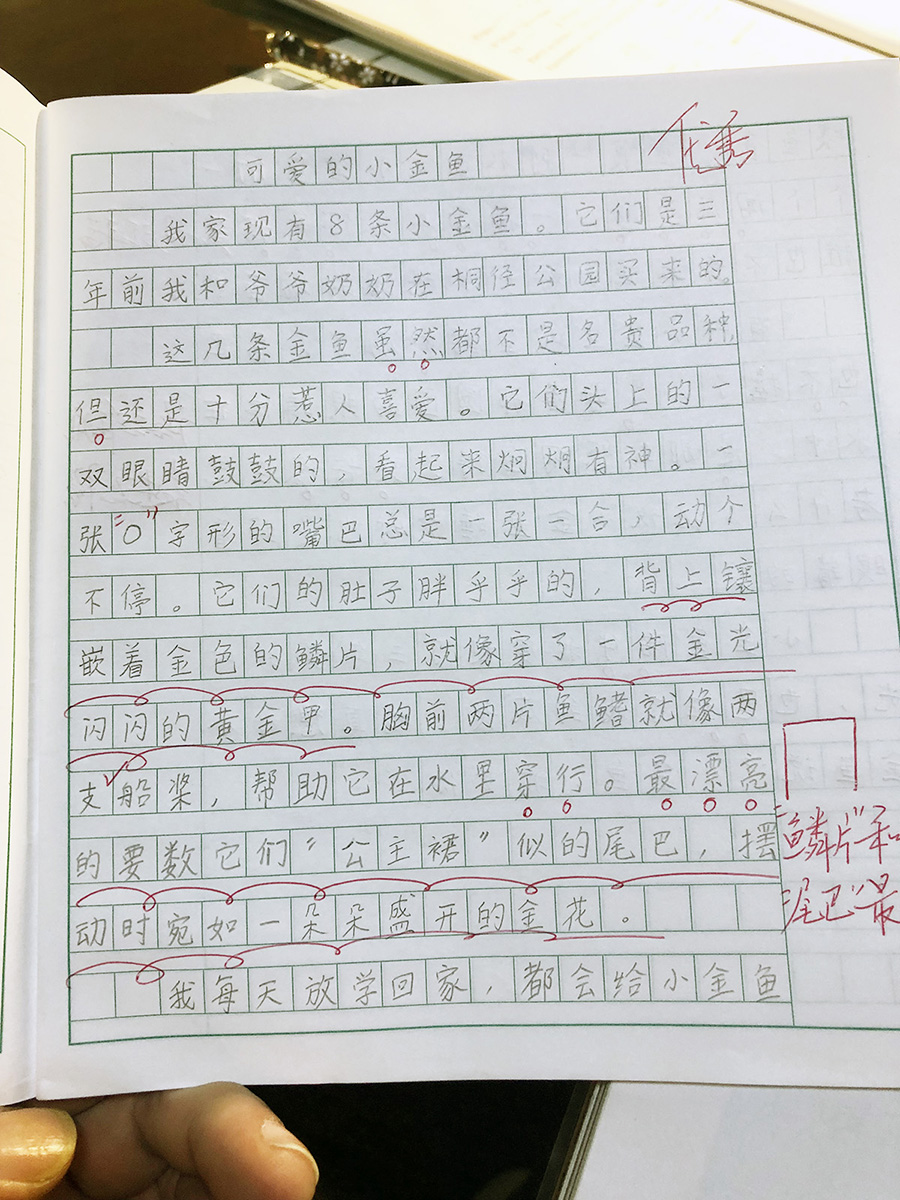 优秀
可爱的小金鱼
我家现有8条小金鱼。它们是三
年前我和爷爷奶奶在桐径公园买来的。
这几条金鱼虽然都不是名贵品种,
但还是十分惹人喜爱。它们头上的一
双眼睛鼓鼓的，看起来炯炯有神。一
张“O”字形的嘴巴总是一张一合，动个
不停。它们的肚子胖乎乎的，背上镶
嵌着金色的鳞片，就像穿了一件金光
闪闪的黄金甲。胸前两片鱼鳍就像两
支船桨，帮助它在水里穿行。最漂亮
的要数它们“公主裙”似的尾巴，摆
动时宛如一朵朵盛开的金花。
我每天放学回家，都会给小金鱼
“鳞片”和
“尾巴”最